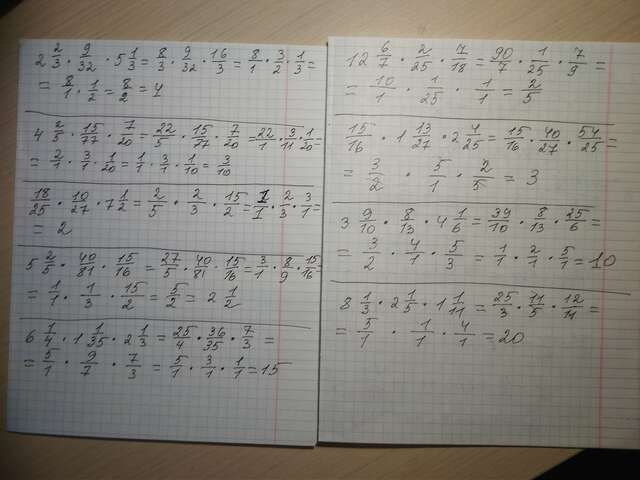 2 2/3 · 9/32 · 5 1/3 = 8/3 · 9/32 · 16/3 = 8/1 · 3/2 · 1/3 =
= 8/1 · 1/2 = 8/2 = 4
4 2/5 · 15/77 · 7/20 = 22/5 · 15/77 · 7/20 = 22/1 · 3/11 · 1/20 =
= 2/1 · 3/1 · 1/20 = 1/1 · 3/1 · 1/10 = 3/10
18/25 · 10/27 · 7 1/2 = 2/5 · 2/3 · 15/2 = 1/1 · 2/3 · 3/1 =
= 2
5 2/5 · 40/81 · 15/16 = 27/5 · 40/81 · 15/16 = 3/1 · 8/9 · 15/16 =
= 1/1 · 1/3 · 15/2 = 5/2 = 2 1/2
6 1/4 · 1 1/35 · 2 1/3 = 25/4 · 36/35 · 7/3 =
= 5/1 · 9/7 · 7/3 = 5/1 · 3/1 · 1/1 = 15
12 6/7 · 2/25 · 7/18 = 90/7 · 1/25 · 7/9 =
= 10/1 · 1/25 · 1/1 = 2/5
15/16 · 1 13/27 · 2 4/25 = 15/16 · 40/27 · 54/25 =
= 3/2 · 5/1 · 2/5 = 3
3 9/10 · 8/13 · 4 1/6 = 39/10 · 8/13 · 25/6 =
= 3/2 · 4/1 · 5/3 = 1/1 · 2/1 · 5/1 = 10
8 1/3 · 2 1/5 · 1 1/11 = 25/3 · 11/5 · 12/11 =
= 5/1 · 1/1 · 4/1 = 20